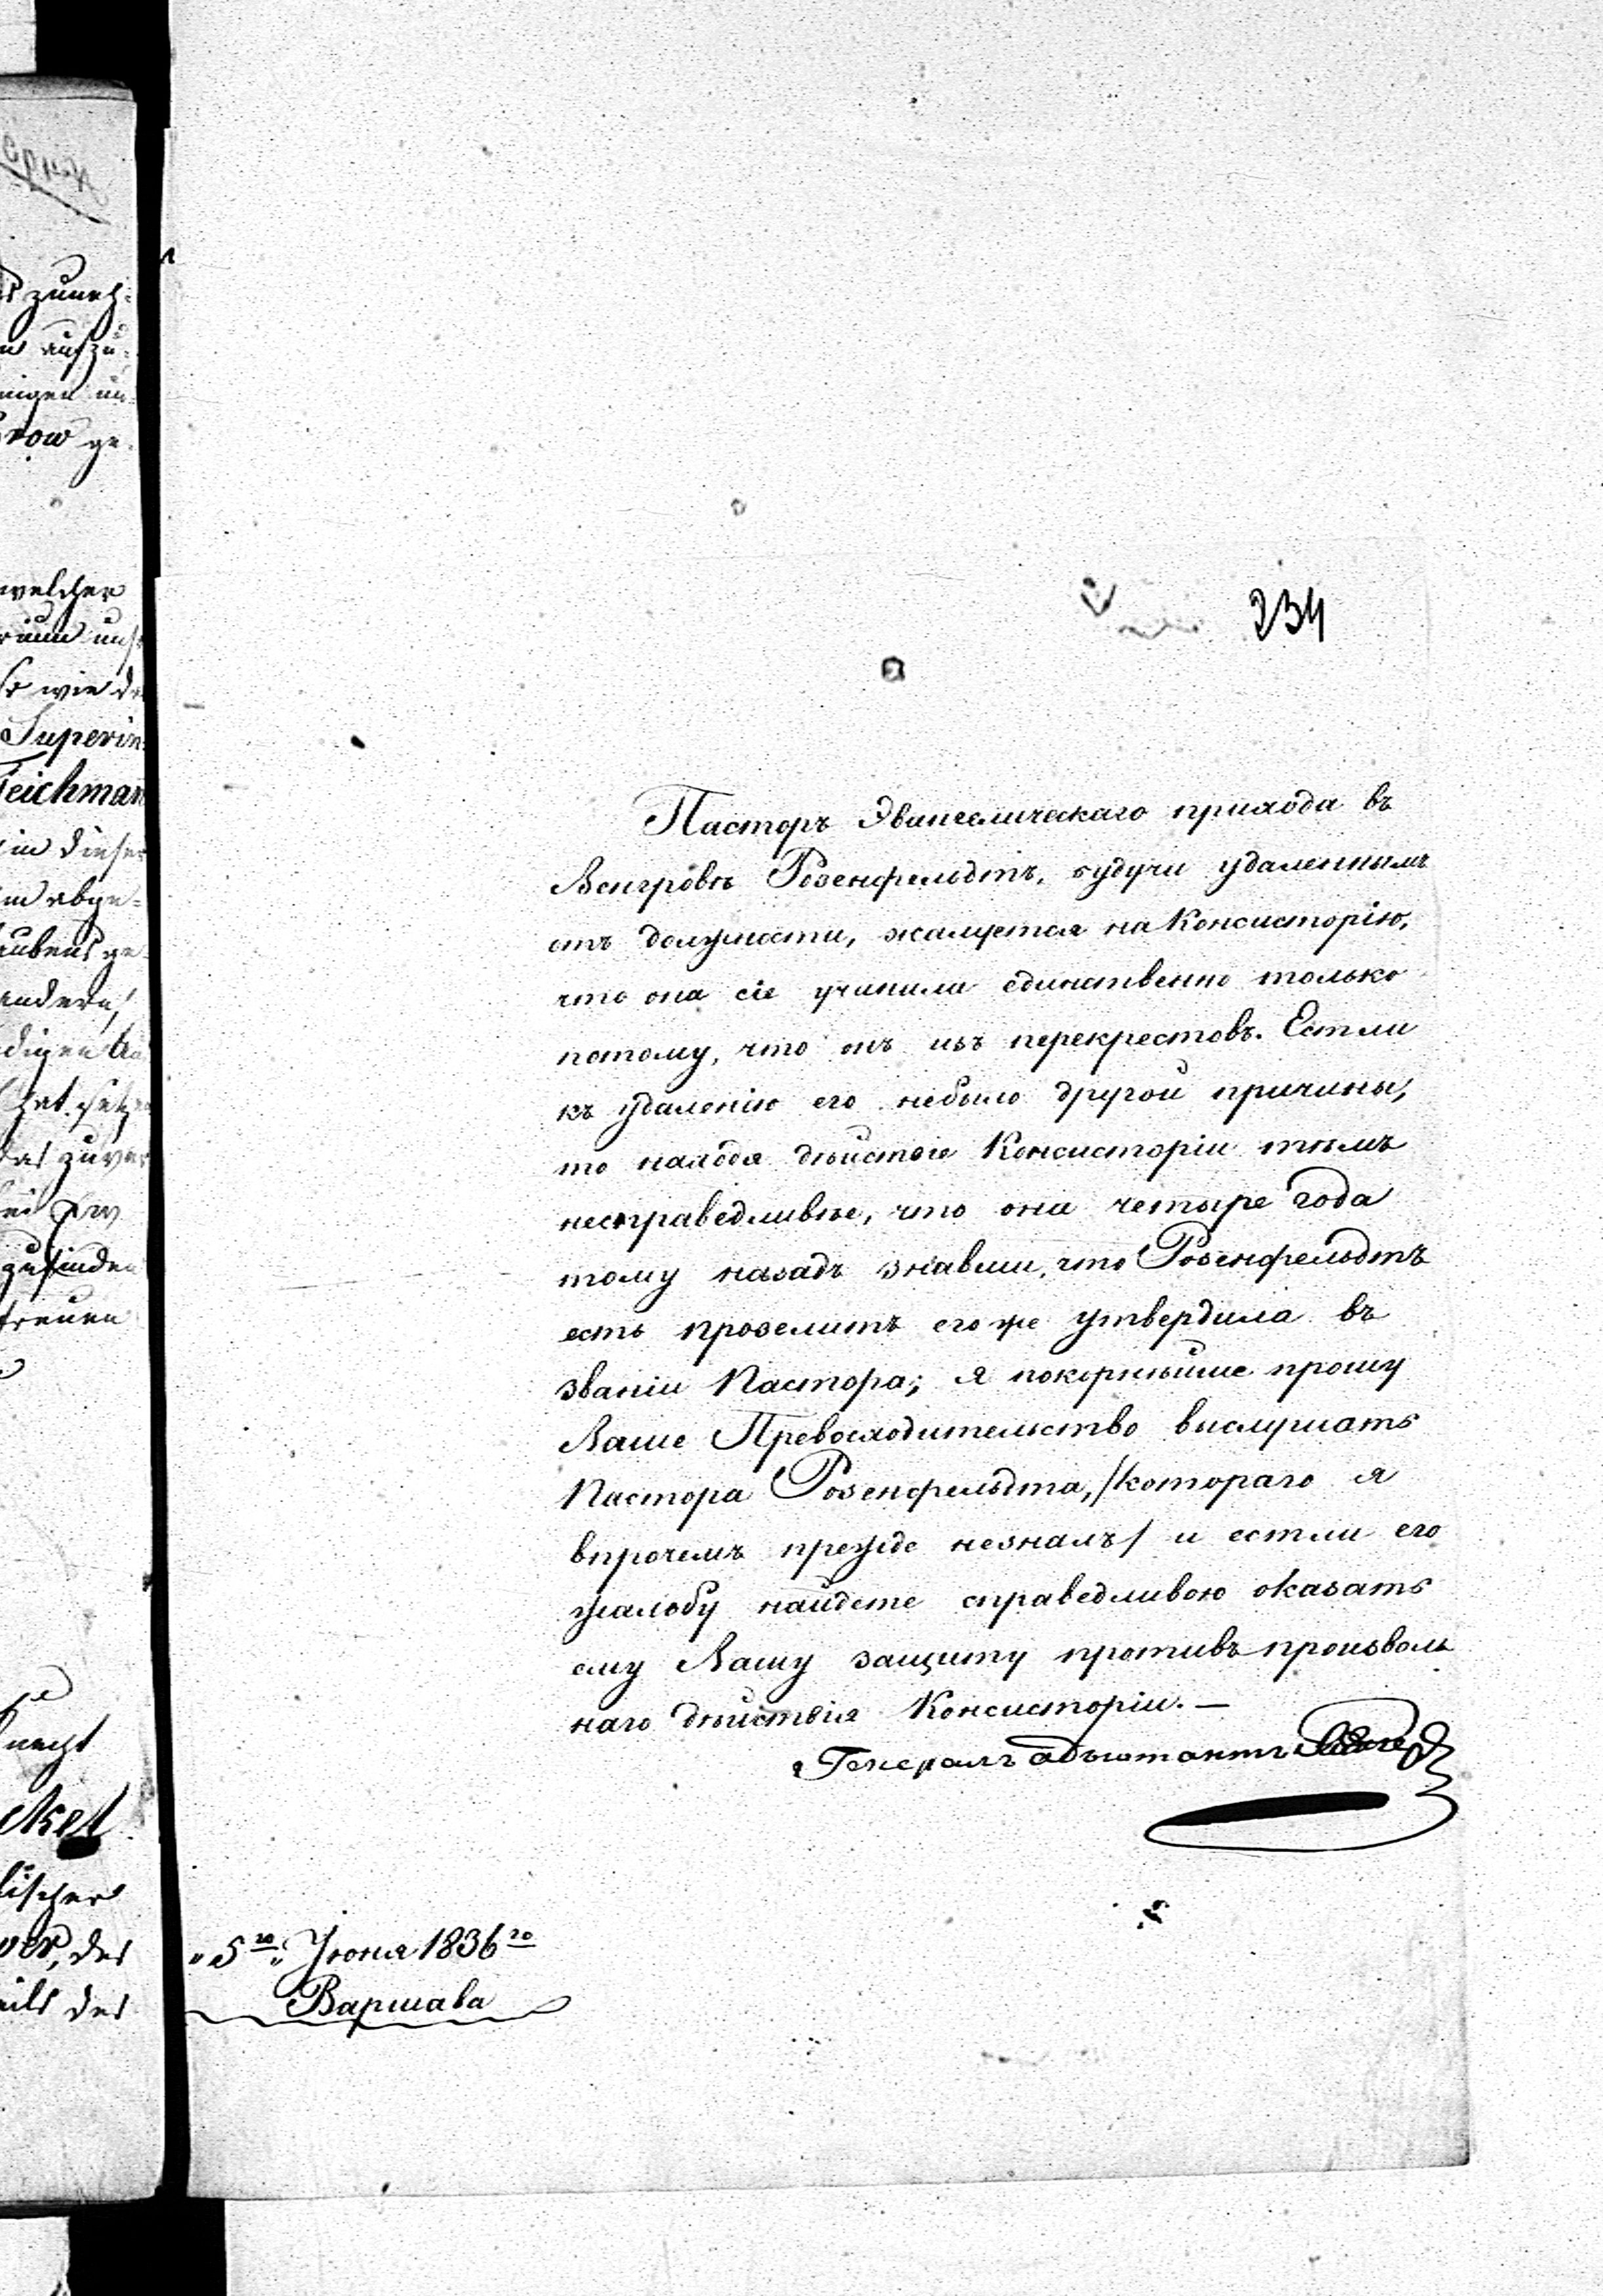 234
Пасторъ Эвангелическаго прихода въ
Венгровѣ Розенфельдтъ, будучи удаленнымъ
отъ должности, жалуется на Консисторію,
что она сіе учинила единственно только
потому, что онъ изъ перекрестовъ. Естли
къ удаленію его небыло другой причины,
то находя дѣйствіе Консисторіи тѣмъ
несправедливѣе, что она четыре года
тому назадъ знавши, что Розенфельдтъ
есть прозелитъ его же утвердила въ
званіи Пастора; я покорнѣйше прошу
Ваше Превосходительство выслушать
Пастора Розенфельдта, /котораго я
впрочемъ прежде незналъ/ и естли его
жалобу найдете справедливою оказать
ему Вашу защиту противъ произволь
наго дѣйствія Консисторіи. —
Генералъ адъютантъ
„5го„ Іюня 1836го
Варшава
zuneh-
aufzu-
row ge-
welcher
wie
Superin
Teichman
in dieser
aubens ge-
andern,
zufinden
treuen
der, des
des